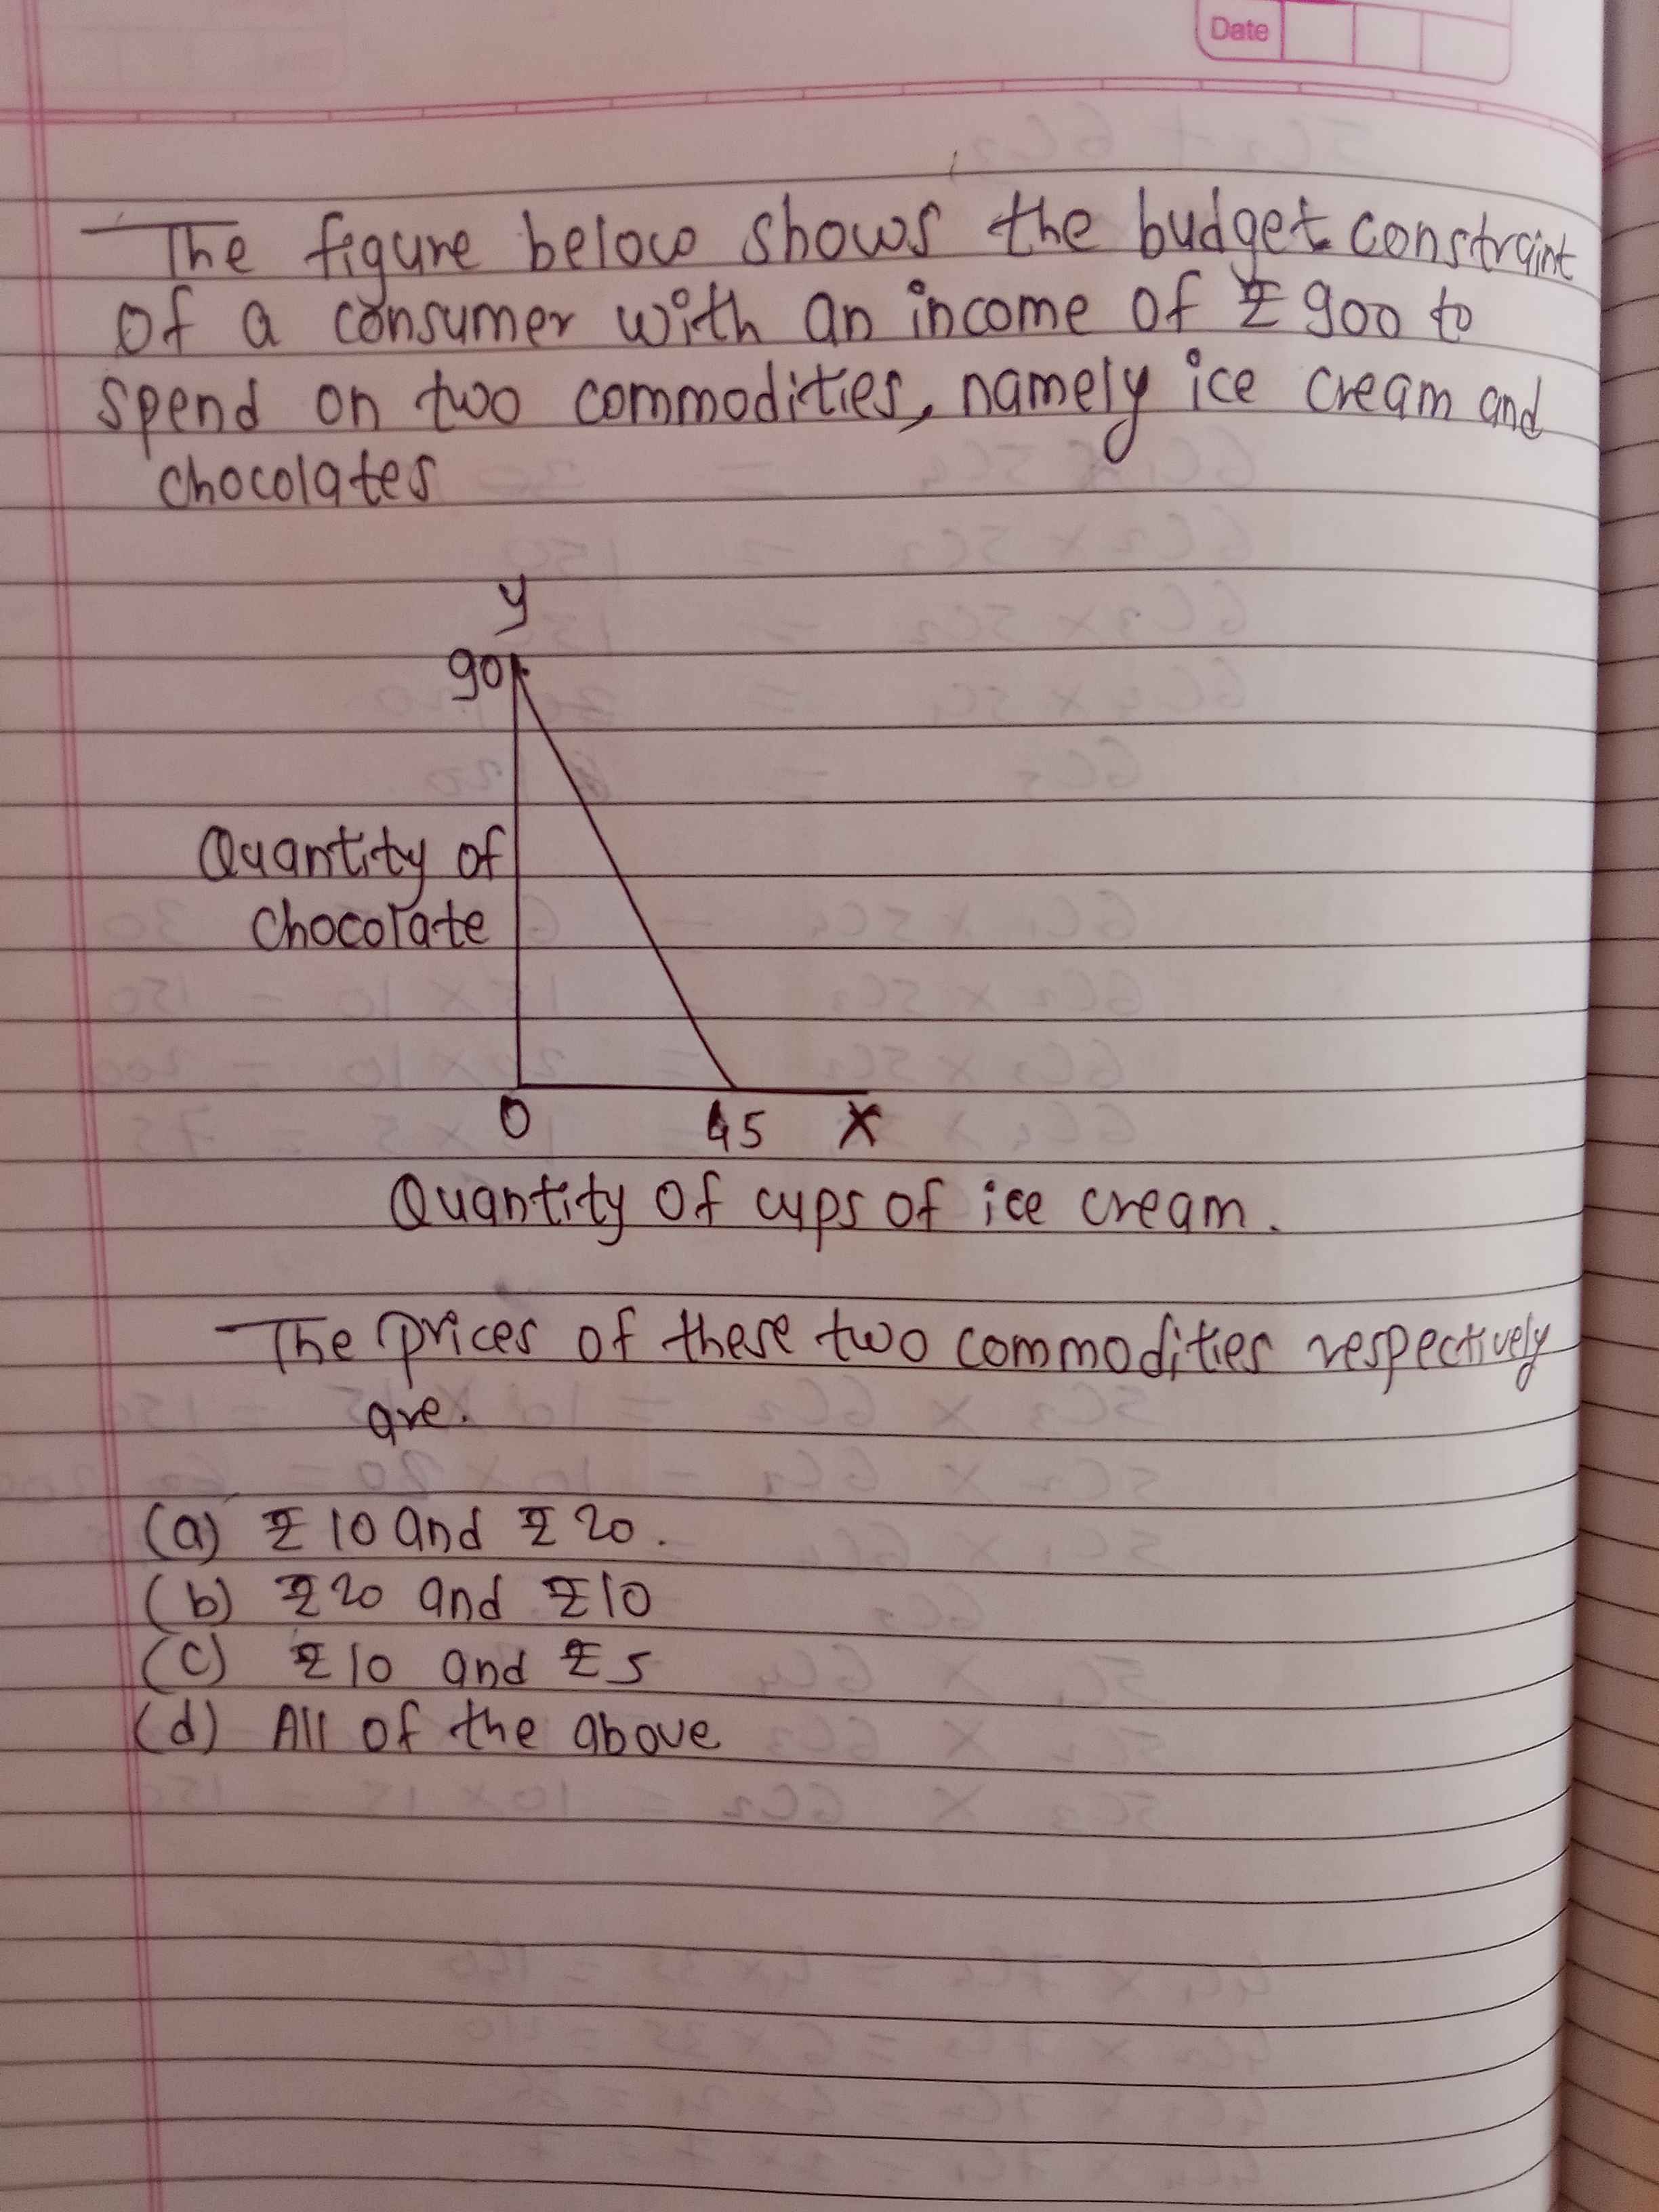 Date
The figure below shows the budget constraint
of a consumer with an income of ₹ 900 to
spend on two commodities, namely ice cream and
chocolates
y
90
Quantity of
chocolate
0 45 X
Quantity of cups of ice cream.
The prices of these two commodities respectively
are.
(a) ₹ 10 and ₹ 20.
(b) ₹ 20 and ₹ 10
(c) ₹ 10 and ₹ 5
(d) All of the above